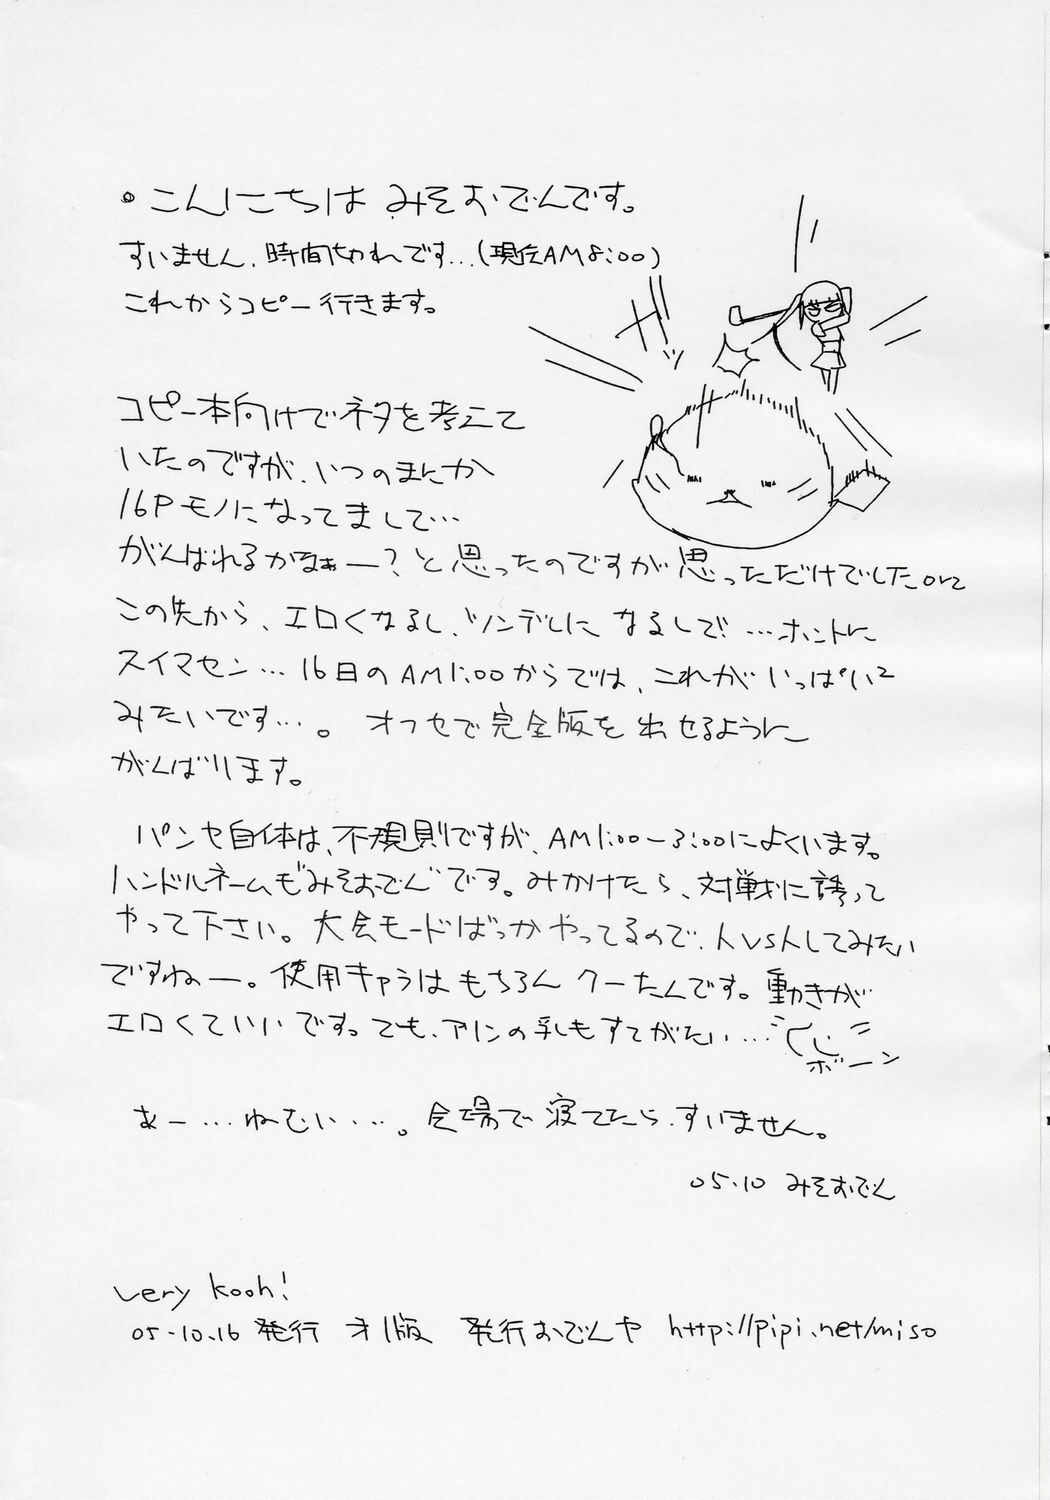 。こんにちは みそおでんです。
すいません、時間切れです…(現在AM8:00)
これからコピー行きます。
コピー本向けでネタを考えて
いたのですが、いつのまにか
16Pモノになってまして…
がんばれるかなぁー?と思ったのですが思っただけでしたorz
この先から、エロくなるし、ツンデレになるしで!…ホントに
スイマセン…16日のAM1:00からでは、これがいっぱい2
みたいです…。 オフセで完全版を出せるように
がんばります。
パンヤ自体は、不規則ですが、AM1:00-3:00によくいます。
ハンドルネームも"みそおでん"です。みかけたら、対戦に誘って
やって下さい。大会モードばっかやってるので、人vs人してみたい
ですねー。使用キャラはもちろん クーたんです。動きが
エロくていいです。でも、アリンの乳もすてがたい…
ボーン
あー…ねむい…。会場で寝てたら、すいません。
05.10 みそおでん
very kooh!
05.10.16 発行 オ1版 発行おでんや http://pipi.net/miso